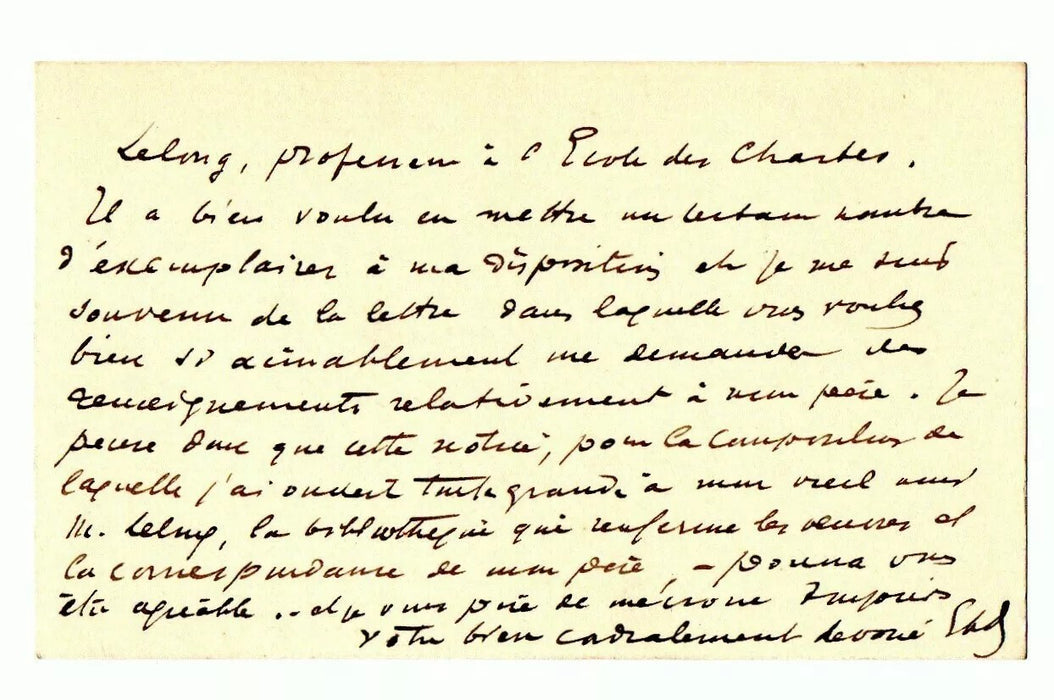 Lelong, professeur à l'Ecole des Chartes.
Il a bien voulu en mettre un certain nombre
d'exemplaires à ma disposition et je me suis
souvenu de la lettre dans laquelle vous vouliez
bien si aimablement me demander des
renseignements relativement à mon père. Je
pense donc que cette notice, pour la composition de
laquelle j'ai ouvert toute grande à mon vieil ami
M. Lelong, la bibliothèque qui renferme les oeuvres et
la correspondance de mon père, – pourra vous
être agréable. .. et je vous prie de me croire toujours
votre bien cordialement dévoué